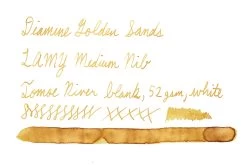 Diamine Golden Sands
LAMY Medium Nib
Tomoe River blank, 52 gsm, white